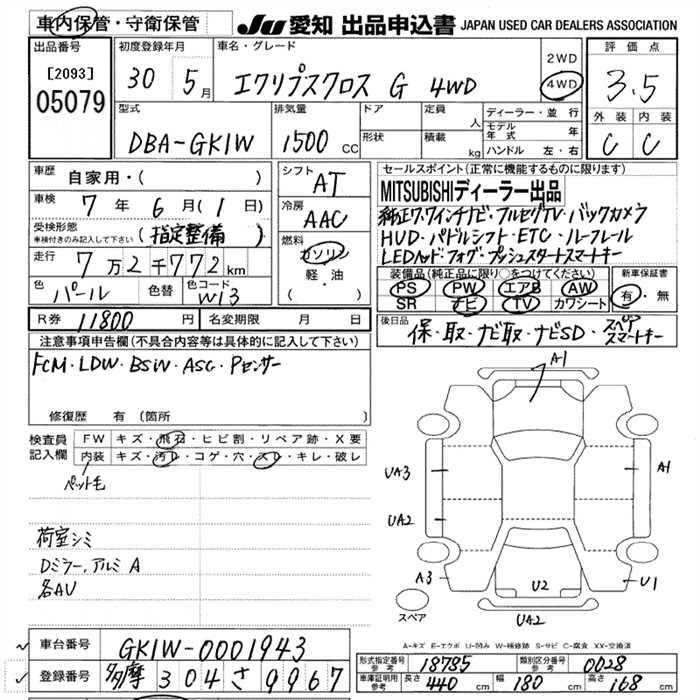 車内保管・守衛保管 JU 愛知 出品申込書 JAPAN USED CAR DEALERS ASSOCIATION
出品番号 初度登録年月 車名・グレード 評価点
[2093] 05079 30 5月 エクリプスクロス G 4WD 2WD 4WD 3.5
型式 排気量 ドア 定員 人 ディーラー・並行 外装 内装
DBA-GK1W 1500 CC 形状 積載 kg モデル年式 年 C C
ハンドル 左・右
車歴 自家用・( シフト AT セールスポイント(正常に機能するものに限ります)
車検 7年 6月(1日) 冷房 AAC MITSUBISHIディーラー出品
受検形態 車検付きのみ記入して下さい (指定整備) 純正7.7インチナビ・フルセグTV・バックカメラ
走行 7万2千772km 燃料 ガソリン・軽・油 HUD・パドルシフト・ETC・ルーフレール
LEDヘッド・フォグ・プッシュスタートスマートキー
色 パール 色替 色コード W13 装備品(純正品に限り○をつけてください) 新車保証書
PS PW エアB AW 有・無
SR ナビ TV カワシート
R券 11800円 名変期限 月 日 後日品 保・取・ナビ取・ナビSD・スペアスマートキー
注意事項申告欄(不具合内容等は具体的に記入して下さい)
FCM・LDW・BSW・ASC・Pセンサー
修復歴 有(箇所
検査員記入欄 FW キズ・飛石・ヒビ割・リペア跡・X要
内装 キズ・汚レ・コゲ・穴・スレ・キレ・破レ
ペット毛
荷室シミ
Dミラー,アルミ A
各AU
A1
UA3 A1
UA2
A3 U2 U1
スペア UA2
A-キズ E-エクボ U-凹み W-補修跡 S-サビ C-腐食 XX-交換済
車台番号 GK1W-0001943
登録番号 多摩 304 さ 9967
形式指定番号 参考 18785 類別区分番号 参考 0028
車庫証明用 参考 長さ 440cm 幅 180cm 高さ 168cm